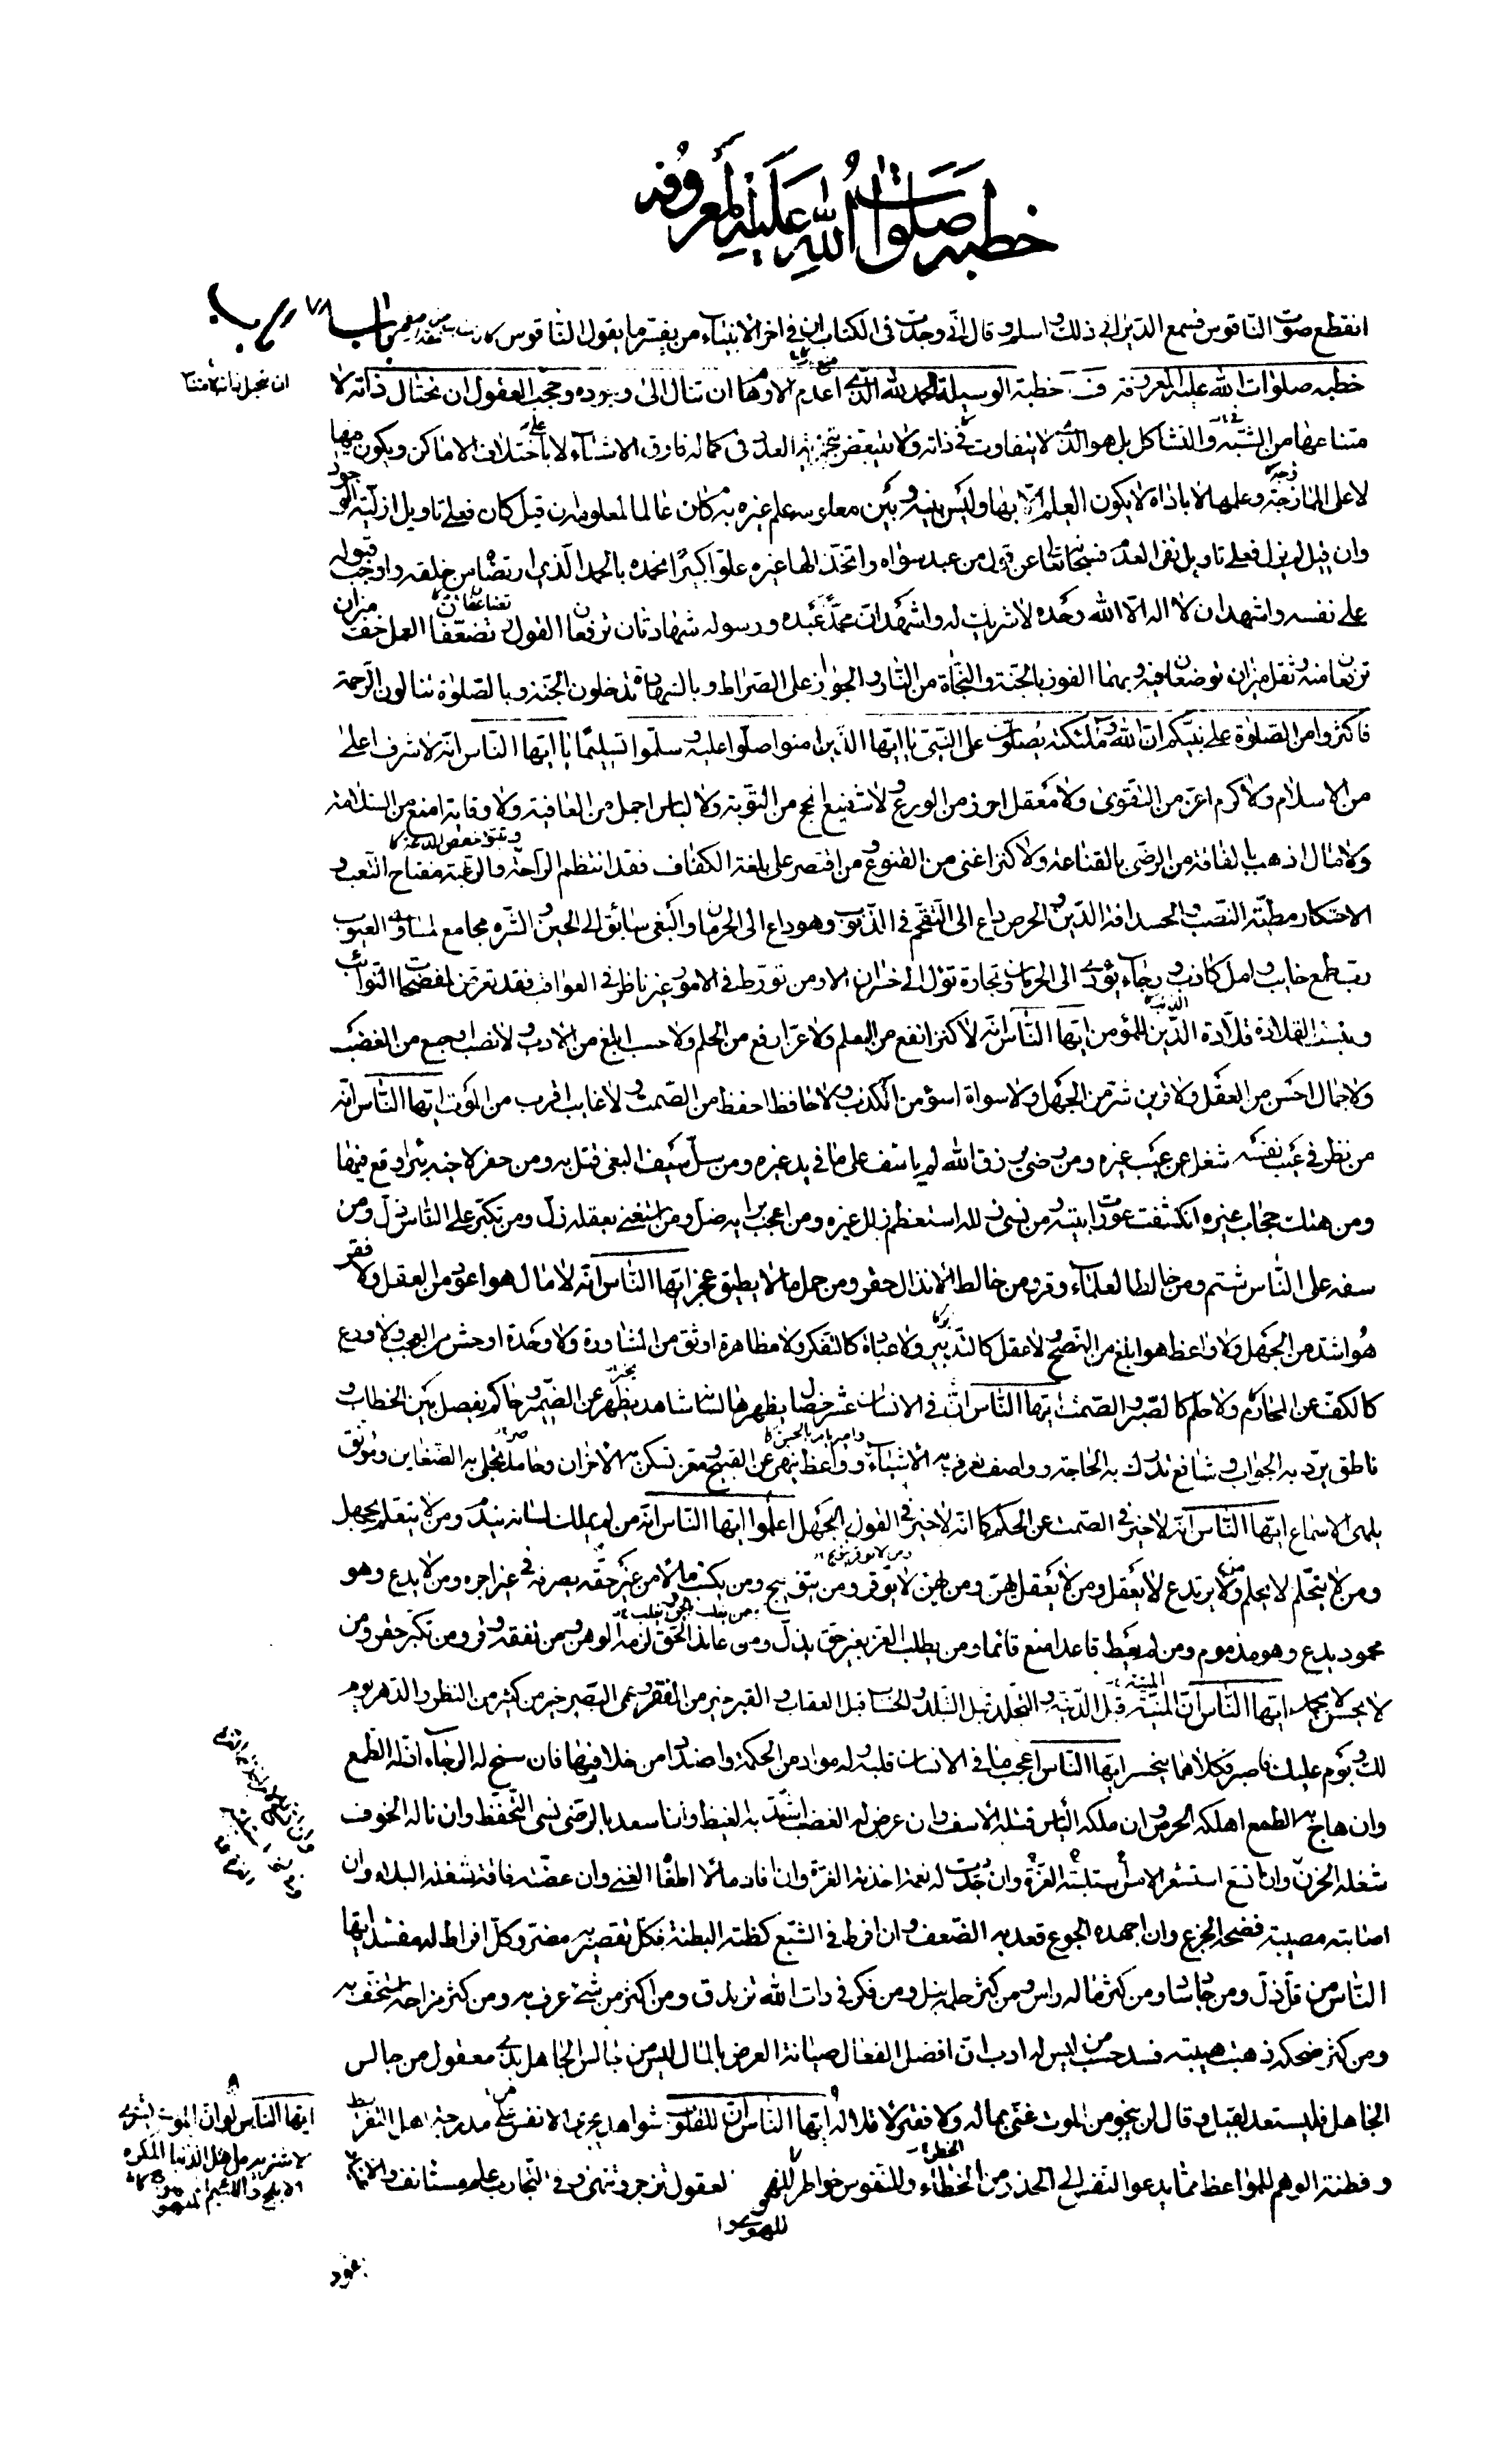 خطبه صلوات الله عليه المعروفه
انقطع صوت الناقوس فسمع الديراني ذلك واسلم وقال اني وجدت في الكتاب ان في اخر الانبياء من يفسر ما يقول الناقوس
خطبه صلوات الله عليه المعروفه ف خطبة الوسيلة الحمد لله الذي اعدم الاوهام ان تنال الى وجوده وحجب العقول ان تختال ذاته لا
متناعها من الشبه والتشاكل بل هو الذي لا يتفاوت في ذاته ولا يتبعض بتجزية العدد في كماله فارق الاشياء لا باختلاف الاماكن ويكون فيها
لا على الممازجة وعلمها لا باداة لا يكون العلم الا بها وليس بينه وبين معلومه علم غيره به كان عالما لمعلومه ان قيل كان فعلى تاويل ازلية الوجود
وان قيل لم يزل فعلى تاويل نفى العدم فسبحانه وتعالى عن قول من عبد سواه واتخذ الها غيره علوا كبيرا نحمده بالحمد الذي ارتضاه من خلقه واوجب قبوله
على نفسه واشهد ان لا اله الا الله وحده لا شريك له واشهد ان محمدا عبده ورسوله شهادتان ترفعان القول وتضعفان العمل خف ميزان
ترفعان منه وثقل ميزان توضعان فيه وبهما الفوز بالجنة والنجاة من النار والجواز على الصراط وبالشهادة تدخلون الجنة وبالصلوة تنالون الرحمة
فاكثروا من الصلوة على نبيكم ان الله وملئكته يصلون على النبي يا ايها الذين امنوا صلوا عليه وسلموا تسليما يا ايها الناس انه لا شرف اعلى
من الاسلام ولا كرم اعز من التقوى ولا معقل احرز من الورع ولا شفيع انجح من التوبة ولا لباس اجمل من العافية ولا وقاية امنع من السلامة
ولا مال اذهب بالفاقة من الرضى بالقناعة ولا كنز اغنى من القنوع ومن اقتصر على بلغة الكفاف فقد انتظم الراحة والرغبة مفتاح التعب و
الاحتكار مطية النصب والحسد افة الدين والحرص داع الى التقحم في الذنوب وهو داع الى الحرمان والبغى سائق الى الحين والشره مجامع لمساوى العيوب
رب طمع خايب وامل كاذب ورجاء يؤدى الى الحرمان وتجارة تؤل الى خسران الا ومن تورط في الامور غير ناظر في العواقب فقد تعرض لمفضحات النوائب
وبئست القلادة قلادة الدين للمؤمن ايها الناس انه لا كنز انفع من العلم ولا عز ارفع من الحلم ولا حسب ابلغ من الادب ولا نصب اوجع من الغضب
ولا جمال احسن من العقل ولا قرين شر من الجهل ولا سواة اسوء من الكذب ولا حافظ احفظ من الصمت ولا غايب اقرب من الموت ايها الناس انه
من نظر في عيب نفسه شغل عن عيب غيره ومن رضى برزق الله لم ياسف على ما في يد غيره ومن سل سيف البغى قتل به ومن حفر لاخيه بئرا وقع فيها
ومن هتك حجاب غيره انكشفت عورات بيته ومن نسى زلله استعظم زلل غيره ومن اعجب برايه ضل ومن استغنى بعقله زل ومن تكبر على الناس ذل ومن
سفه على الناس شتم ومن خالط العلماء وقر ومن خالط الانذال حقر ومن حمل ما لا يطيق عجز ايها الناس انه لا مال هو اعود من العقل ولا فقر
هو اشد من الجهل ولا واعظ هو ابلغ من النصح ولا عقل كالتدبير ولا عبادة كالتفكر ولا مظاهرة اوثق من المشاورة ولا وحدة اوحش من العجب ولا ورع
كالكف عن المحارم ولا حلم كالصبر والصمت ايها الناس ان في الانسان عشر خصال يظهرها لسانه شاهد يظهر عن الضمير وحاكم يفصل بين الخطاب و
ناطق يرد به الجواب وشافع تدرك به الحاجة وواصف تعرف به الاشياء وواعظ ينهى عن القبيح ومعز تسكن به الاحزان وحامد تجلى به الضغاين ومونق
يلهى الاسماع ايها الناس انه لا خير في الصمت عن الحكم كما انه لا خير في القول بالجهل اعلموا ايها الناس انه من لم يملك لسانه يندم ومن لا يتعلم يجهل
ومن لا يتحلم لا يحلم ومن لا يرتدع لا يعقل ومن لا يعقل يهن ومن يهن لا يوقر ومن يتق ينج ومن يكسب مالا من غير حقه يصرفه في غير اجره ومن لا يدع وهو
محمود يدع وهو مذموم ومن لم يعط قاعدا منع قائما ومن يطلب العز بغير حق يذل ومن عاند الحق لزمه الوهن ومن تفقه وقر ومن تكبر حقر ومن
لا يحسن لا يحمد ايها الناس ان المنية قبل الدنية والتجلد قبل التبلد والحساب قبل العقاب والقبر خير من الفقر وعمى البصر خير من كثير من النظر والدهر يوم
لك ويوم عليك فاصبر فكلاهما سيخسر ايها الناس اعجب ما في الانسان قلبه وله مواد من الحكمة واضداد من خلافها فان سنح له الرجاء اذله الطمع
وان هاج به الطمع اهلكه الحرص وان ملكه اليأس قتله الاسف وان عرض له الغضب اشتد به الغيظ وان اسعد بالرضى نسى التحفظ وان ناله الخوف
شغله الحزن وان اتسع استشعر الامن استلبته الغرة وان جددت له نعمة اخذته الغرة وان افاد مالا اطغاه الغنى وان عضته فاقة شغله البلاء وان
اصابته مصيبة فضحه الجزع وان اجهده الجوع قعد به الضعف وان افرط في الشبع كظته البطنة فكل تقصير به مضر وكل افراط له مفسد ايها
الناس من قل ذل ومن جاد ساد ومن كثر ماله رأس ومن كثر حلمه نبل ومن فكر في ذات الله تزندق ومن اكثر من شئ عرف به ومن كثر مزاحه استخف به
ومن كثر ضحكه ذهبت هيبته فسد حسب من ليس له ادب ان افضل الفعال صيانة العرض بالمال ليس من جالس الجاهل بذى معقول من جالس
الجاهل فليستعد لقيل وقال لن ينجو من الموت غنى بماله ولا فقير لاقلاله ايها الناس ان للقلوب شواهد تجرى الانفس عن مدرجة اهل التفريط
وفطنة الوهم للمواعظ مما يدعو النفس الى الحذر من الخطاء وللنفوس خواطر للهوى لعقول تزجر وتنهى وفي التجارب علم مستانف والاعتبار
ايها الناس لو ان الموت يشترى
لاشتريه من اهل الدنيا الكريم
الابلج واللئيم الملهوج
يقود